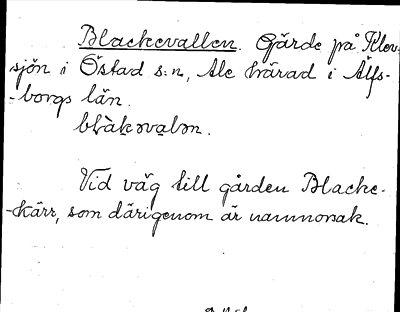 Blackevallen. Gärde på Klev-
sjön i Östad s:n, Ale härad i Älfs-
-borgs län.
blàkəvalən.
Vid väg till gården Blacke-
-kärr, som därigenom är namnorsak.